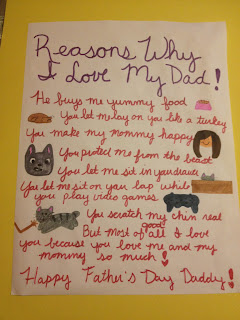 Reasons Why
I Love My Dad!
He buys me yummy food
You let me lay on you like a turkey
You make my mommy happy
You protect me from the beast
You let me sit in your
You let me sit on your lap while
you play video games
You scratch my chin real
good
But most of all I love
you because you love me and my
mommy so much!
Happy Father's Day Daddy!